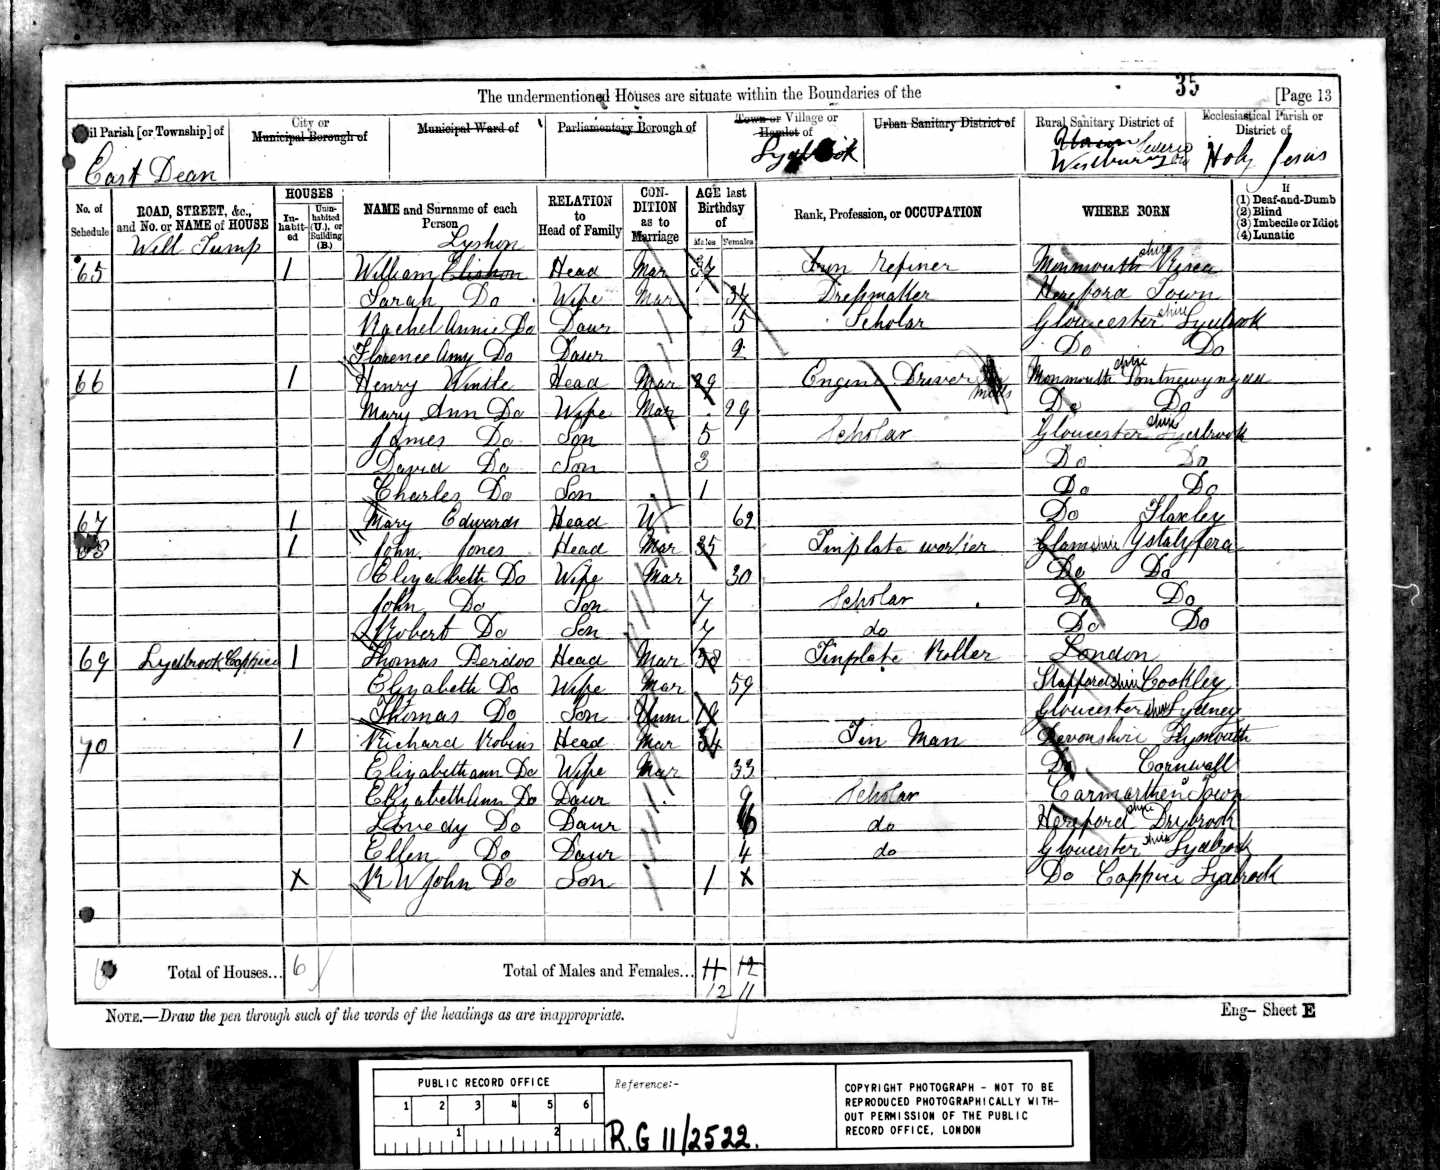 35
The undermentioned Houses are situate within the Boundaries of the [Page 13
Civil Parish [or Township] of East Dean
City or Municipal Borough of
Municipal Ward of
Parliamentary Borough of
Town or Village or Hamlet of Lydbrook
Urban Sanitary District of
Rural Sanitary District of Union Westbury on Severn
Ecclesiastical Parish or District of Holy Jesus
No. of Schedule ROAD, STREET, &c., and No. or NAME of HOUSE HOUSES Inhabited Uninhabited (U.), or Building (B.) NAME and Surname of each Person RELATION to Head of Family CONDITION as to Marriage AGE last Birthday of Males Females Rank, Profession, or OCCUPATION WHERE BORN If (1) Deaf-and-Dumb (2) Blind (3) Imbecile or Idiot (4) Lunatic
Well Tump Lyshon
65 1 William Elishon Head Mar 37 Iron Refiner Monmouthshire Risca
Sarah Do Wife Mar 34 Dressmaker Hereford Town
Rachel Annie Do Daur 5 Scholar Gloucestershire Lydbrook
Florence Amy Do Daur 2 Do Do
66 1 Henry Wintle Head Mar 29 Engine Driver Monmouthshire Pontnewynydd
Mary Ann Do Wife Mar 29 Do Do
James Do Son 5 Scholar Gloucestershire Lydbrook
David Do Son 3 Do Do
Charles Do Son 1 Do Do
67 1 Mary Edwards Head W 62 Do Flaxley
68 1 John Jones Head Mar 35 Tinplate worker Glamshire Ystalyfera
Elizabeth Do Wife Mar 30 Do Do
John Do Son 7 Scholar Do Do
Robert Do Son 4 do Do Do
69 Lydbrook Coppice 1 Thomas Head Mar 58 Tinplate Roller London
Elizabeth Do Wife Mar 59 Staffordshire Cookley
Thomas Do Son Unm Gloucestershire Lydney
70 1 Richard Robins Head Mar 34 Tin Man Devonshire Plymouth
Elizabeth ann Do Wife Mar 33 Do Cornwall
Elizabeth Ann Do Daur 9 Scholar Carmarthen Town
Lovedy Do Daur 6 do Herefordshire Drybrook
Ellen Do Daur 4 do Gloucestershire Lydbrook
X R W John Do Son 1 X Do Coppice Lydbrook
6 Total of Houses... 6 Total of Males and Females... 11 12
12 11
NOTE.—Draw the pen through such of the words of the headings as are inappropriate. Eng- Sheet E
PUBLIC RECORD OFFICE
1 2 3 4 5 6
1 2
Reference:-
R.G 11/2522.
COPYRIGHT PHOTOGRAPH - NOT TO BE
REPRODUCED PHOTOGRAPHICALLY WITH-
OUT PERMISSION OF THE PUBLIC
RECORD OFFICE, LONDON